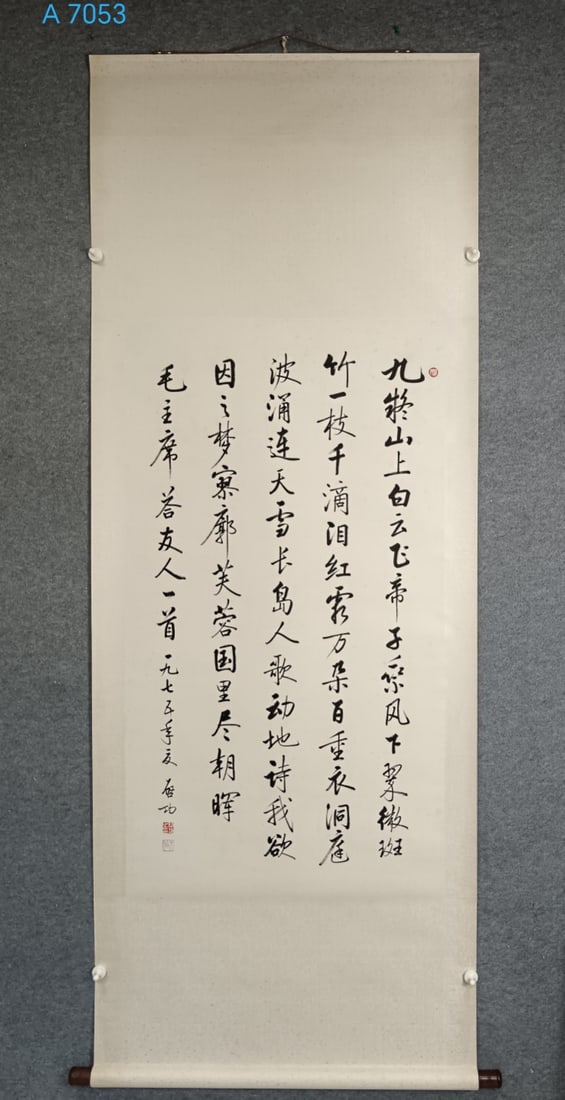 A 7053
九嶷山上白云飞帝子乘风下翠微斑
竹一枝千滴泪紅霞万朵百重衣洞庭
波涌連天雪长岛人歌动地诗我欲
因之梦寥廓芙蓉国里尽朝暉
毛主席答友人一首 一九七五年夏 启功